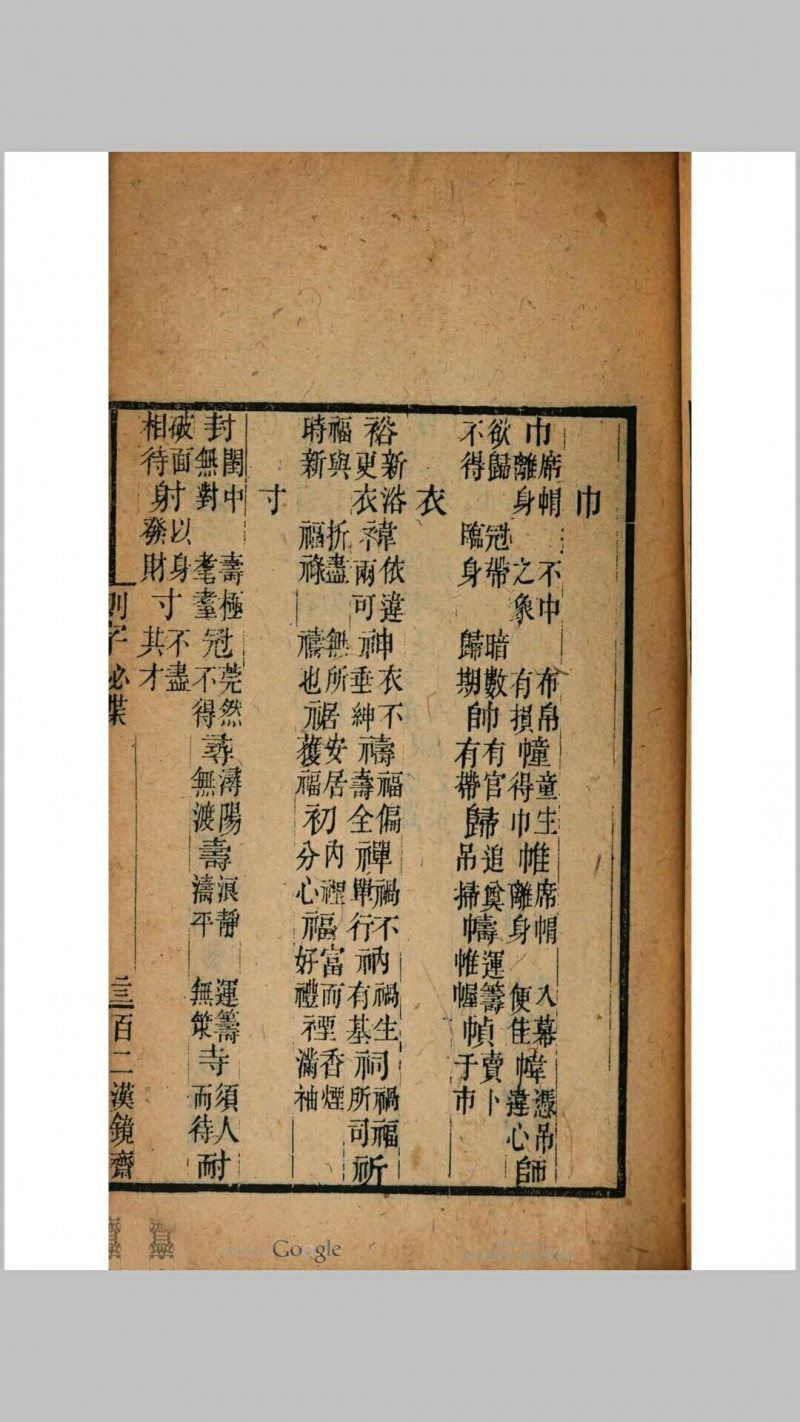 巾
巾席帽離身 不中之象 布帛有損幢童生得巾帷席帽離身 入幕便佳幃憑吊違心師
欲歸不得 冠帶臨身 暗數歸期帥有官有帶歸追奠吊掃幬運籌帷幄幀賣卜于市
衣
裕新浴更衣禕依違兩可神衣不垂紳禱福偏壽全禪禍不單行衲禍生有基祠禍福所司祈
福與時新 折盡福祿 無所禱也裾安居獲福初內裡分心福富而好禮禋香煙滿袖
寸
封閨中無對 壽極耄耋冠莞然不得尋潯陽無渡壽浪靜濤平 運籌無策寺須人而待耐
破面相待射以身發財寸不盡共才
測字秘牒
三百二漢鏡齋
Google